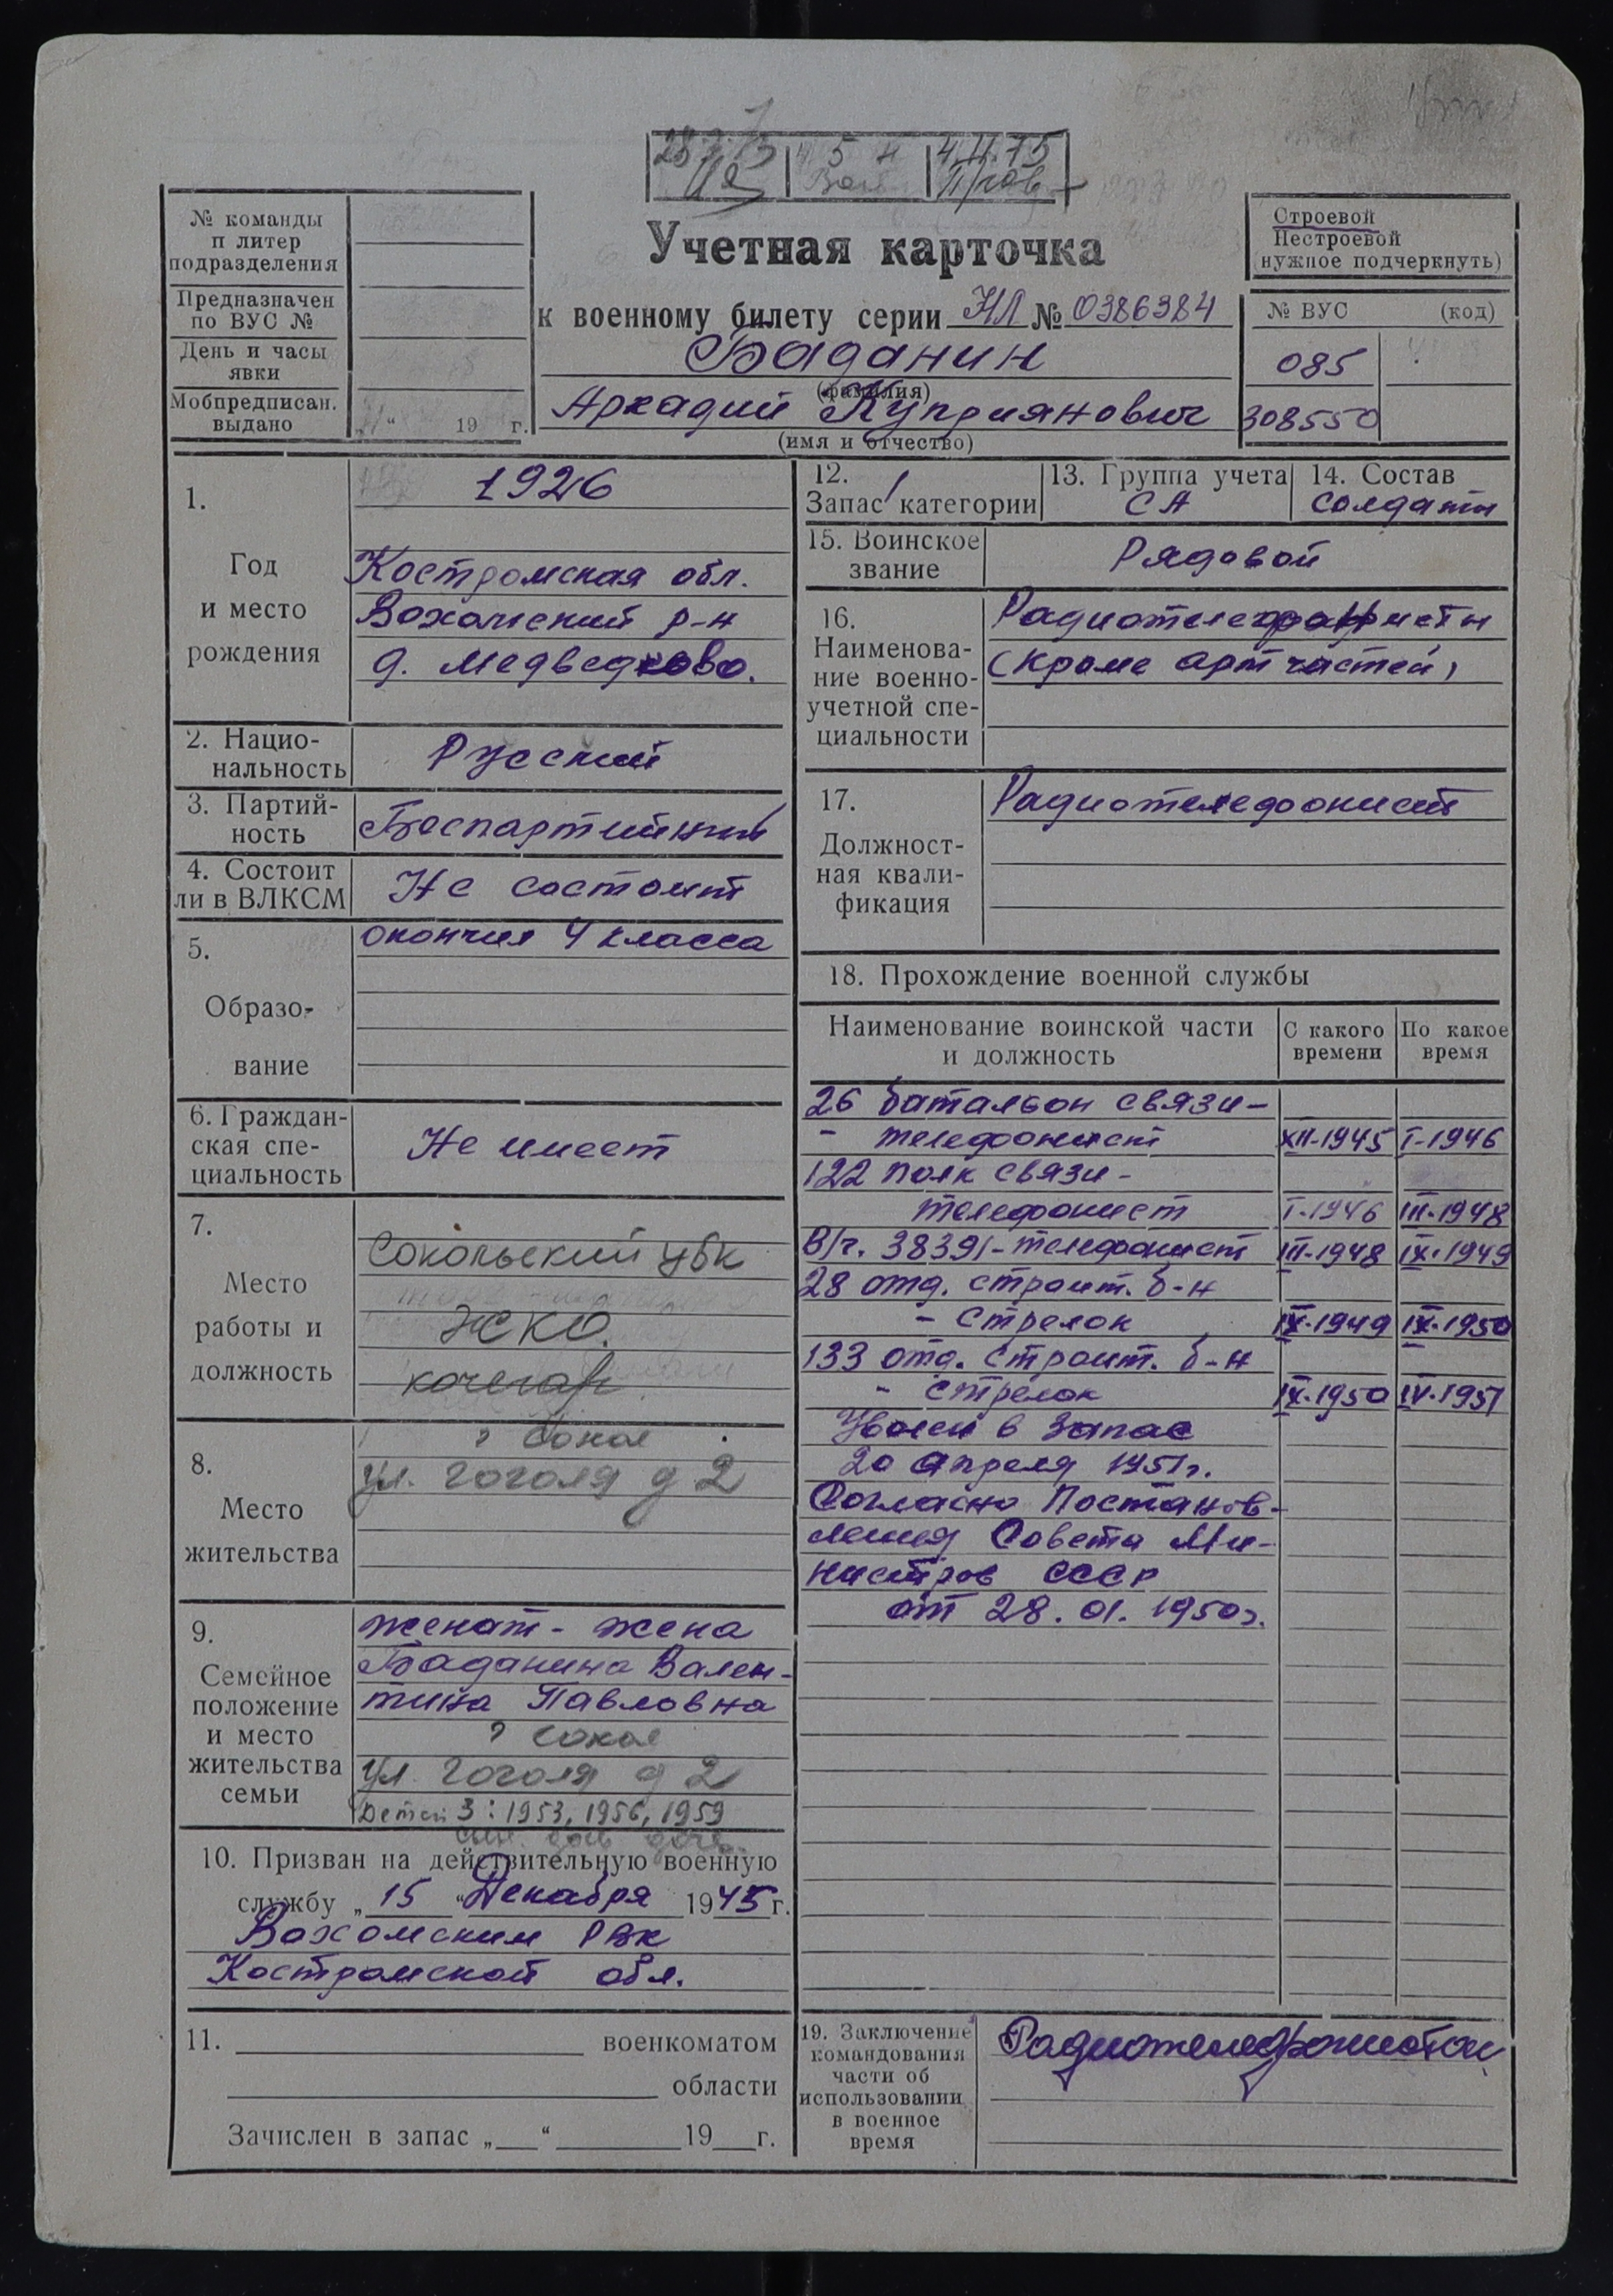 4.II.75
№ команды
п литер
подразделения
Предназначен
по ВУС №
День и часы
явки
Мобпредписан.
выдано
„ “ 19 г.
Учетная карточка
к военному билету серии НЛ № 0386384
Баданин
(фамилия)
Аркадий Куприянович
(имя и отчество)
Строевой
Нестроевой
нужное подчеркнуть)
№ ВУС (код)
085
308550
1.
Год
и место
рождения
1926
Костромская обл.
Вохомский р-н
д. Медведково.
2. Нацио-
нальность
Русский
3. Партий-
ность
Беспартийный
4. Состоит
ли в ВЛКСМ
Не состоит
5.
Образо-
вание
окончил 4 класса
6. Граждан-
ская спе-
циальность
Не имеет
7.
Место
работы и
должность
Сокольский ЦБК
ЖКО.
кочегар
8.
Место
жительства
г Сокол
ул. Гоголя д 2
9.
Семейное
положение
и место
жительства
семьи
женат - жена
Баданина Вален-
тина Павловна
г Сокол
ул. Гоголя д 2
Детей 3: 1953, 1956, 1959
сын дочь дочь
10. Призван на действительную военную
службу „ 15 “ Декабря 1945 г.
Вохомским РВК
Костромской обл.
11. военкоматом
области
Зачислен в запас „ “ 19 г.
12.
Запас 1 категории
13. Группа учета
СА
14. Состав
солдаты
15. Воинское
звание
Рядовой
16.
Наименова-
ние военно-
учетной спе-
циальности
(кроме артчастей)
17.
Должност-
ная квали-
фикация
Радиотелефонист
18. Прохождение военной службы
Наименование воинской части
и должность
С какого
времени
По какое
время
26 батальон связи -
- телефонист XII-1945 I-1946
122 полк связи -
телефонист I-1946 III-1948
В/ч. 38391 - телефонист III-1948 IX-1949
28 отд. строит. б-н
- стрелок IX-1949 IX-1950
133 отд. строит. б-н
- стрелок IX-1950 IV-1951
Уволен в запас
20 апреля 1951г.
Согласно Постанов-
ления Совета Ми-
нистров СССР
от 28.01.1950г.
19. Заключение
командования
части об
использовании
в военное
время
Радиотелефонистом